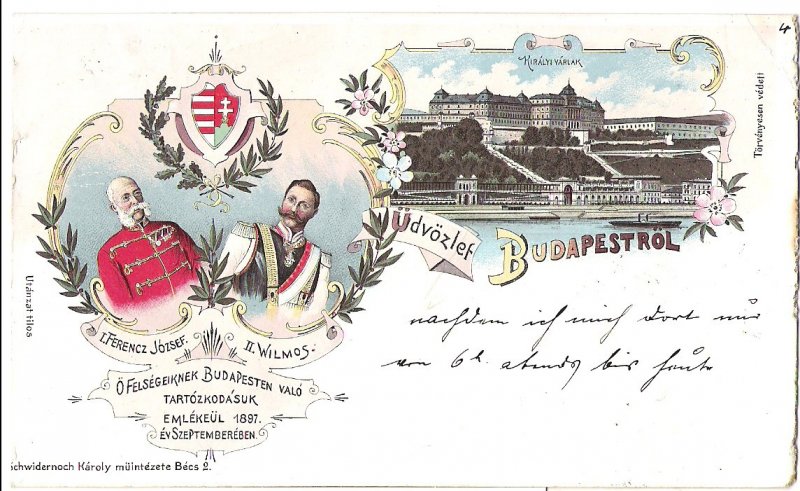 4
KIRÁLYI VÁRLAK
Törvényesen védett
Üdvözlet
BUDAPESTRŐL
Utánzat tilos
I. FERENCZ JÓZSEF.
II. WILMOS.
Ő FELSÉGEIKNEK BUDAPESTEN VALÓ
TARTÓZKODÁSUK
EMLÉKEÜL 1897.
ÉV SZEPTEMBERÉBEN.
nachdem ich mich dort nur
von 6h abends bis heute
Schwidernoch Károly műintézete Bécs 2.